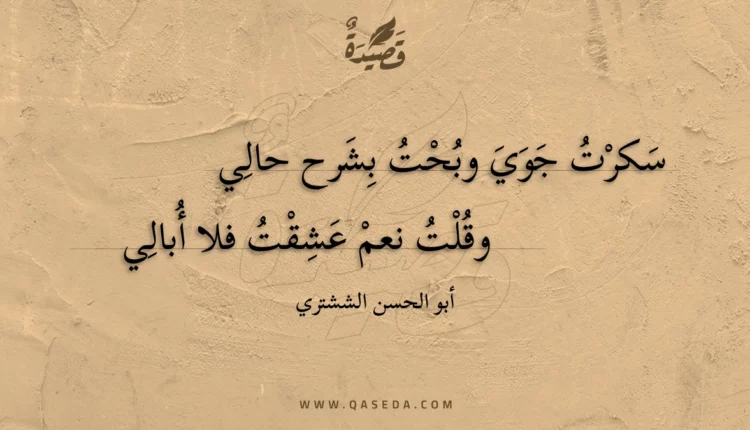 قَصِيدَةٌ
سَكرْتُ جَوَيَ وبُحْتُ بِشَرح حالِي
وقُلْتُ نعمْ عَشِقْتُ فلا أُبالِي
أبو الحسن الششتري
WWW.QASEDA.COM